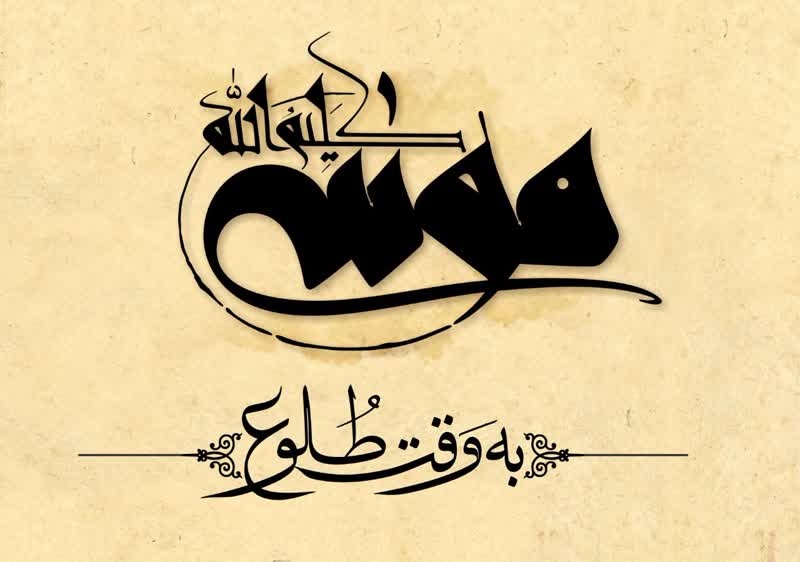 موسی کلیم الله
به وقت طُلوع